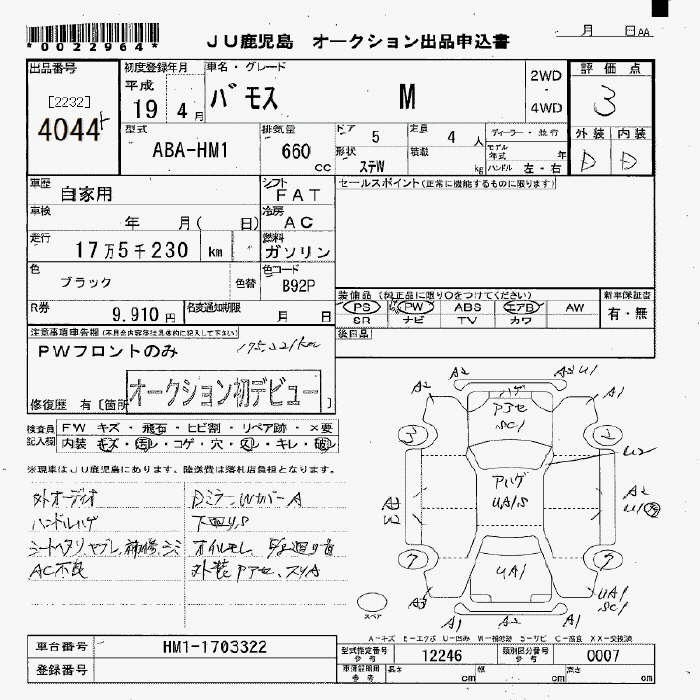 *0022964*
JU鹿児島 オークション出品申込書
月 日 AA
出品番号
[2232]
4044
初度登録年月
平成
19 4月
車名・グレード
バモス M
2WD
・
4WD
評価点
3
外装 内装
D D
型式
ABA-HM1
排気量
660
cc
ドア 5
形状 ステW
定員 4 人
積載 kg
ディーラー・並行
モデル年式 年
ハンドル 左・右
車歴
自家用
シフト
FAT
セールスポイント(正常に機能するものに限ります)
車検
年 月( 日)
冷房
AC
走行
17万5千230 km
燃料
ガソリン
色
ブラック
色替
色コード
B92P
R券
9.910円
名変通知期限
月 日
装備品(純正品に限り○をつけてください)
PS PW ABS エアB AW
SR ナビ TV カワ
新車保証書
有・無
後日品
注意事項車告報(不具合内容等は具体的に記入して下さい)
PWフロントのみ
175,221km
修復歴 有〔箇所
オークション初デビュー
〕
検査員記入欄
FW キズ・飛石・ヒビ割・リペア跡・×要
内装 キズ・汚レ・コゲ・穴・スレ・キレ・破レ
※現車はJU鹿児島にあります、陸送費は落札店負担となります。
外オーデオ
ハンドルハゲ
シートヘタリ,ヤブレ,補修,シミ
AC不良
DミラーWカバーA
下廻りS
オイルモレ
外装 アセ、スリA
A2 A2 U1
A1 ハゲ A1
アセ
SC1
3 2
U2
アハゲ
UA1S
A2
7 7
UA1
A3
UA1
SC1
A1 A1
スペア
A-キズ E-エクボ U-凹み W-補修跡 S-サビ C-腐食 XX-交換済
車台番号 HM1-1703322
登録番号
型式指定番号 参考 12246
類別区分番号 参考 0007
車庫証明用 参考 長さ cm 幅 cm 高さ cm